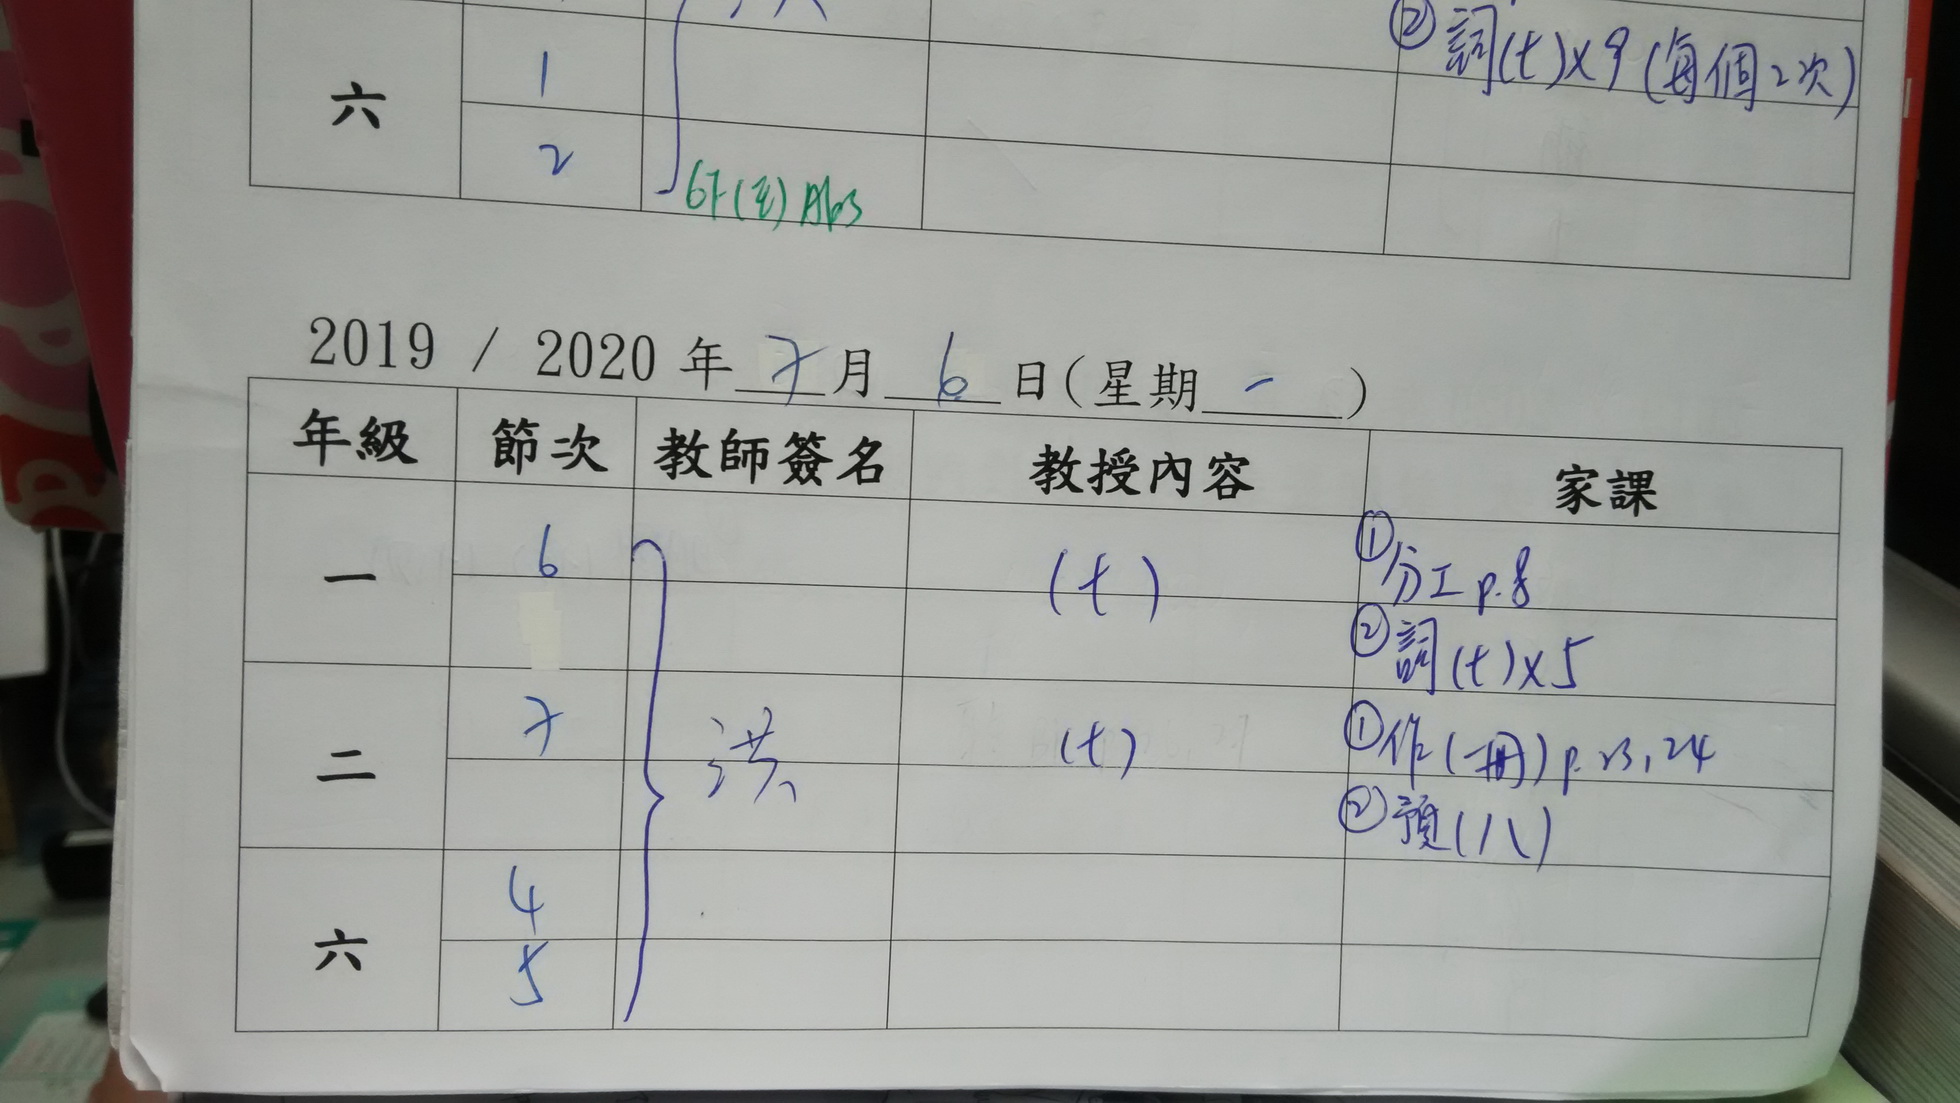 ② 詞(七)x9 (每個2次)
六
1
2
2019 / 2020 年 7 月 6 日(星期 一 )
年級 節次 教師簽名 教授內容 家課
一 6 (七) ① 分工 p.8
② 詞(七)x5
二 7 洪 (七) ① 作(一冊) p.23,24
② 預(八)
六 4
5